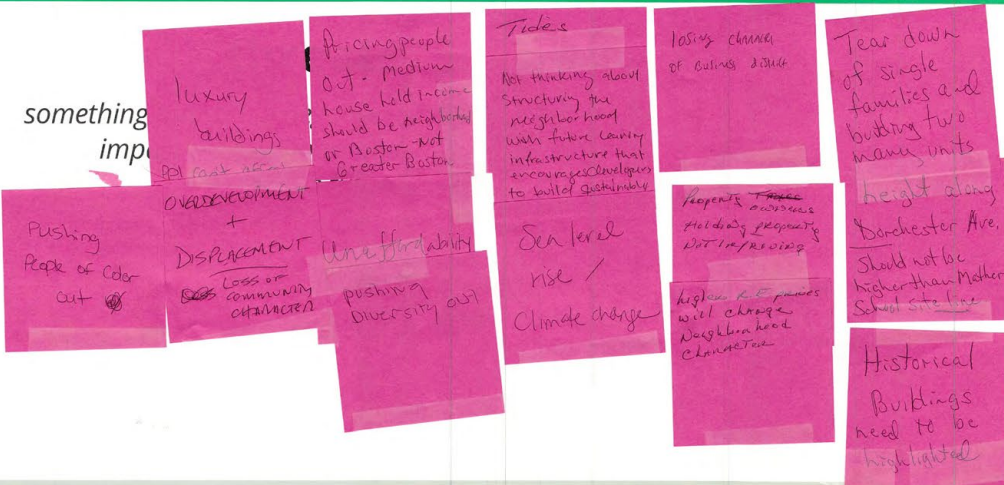 something
imp
luxury
buildings
ppl can't afford
Pricing people
out - Medium
house hold income
should be neighborhood
or Boston - Not
Greater Boston
Tides
Not thinking about
structuring the
neighborhood
with future learning
infrastructure that
encourages developers
to build sustainably
losing character
of business district
Tear down
of single
families and
building two
many units
Pushing
People of Color
out
OVERDEVELOPMENT
+
DISPLACEMENT
LOSS OF
COMMUNITY
CHARACTER
Unaffordability
pushing
Diversity out
Sea level
rise /
Climate change
Property
owners
Holding property
NOT IMPROVING
higher R.E prices
will change
Neighborhood
Character
height along
Dorchester Ave.
Should not be
higher than Mather
School site line
Historical
Buildings
need to be
highlighted